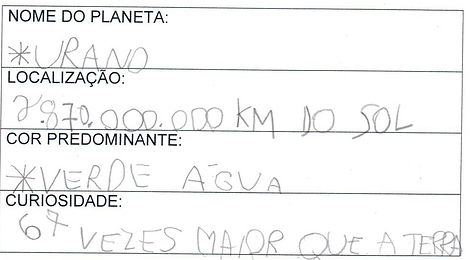 NOME DO PLANETA:
*URANO
LOCALIZAÇÃO:
2.870.000.000 KM DO SOL
COR PREDOMINANTE:
*VERDE ÁGUA
CURIOSIDADE:
67 VEZES MAIOR QUE A TERRA